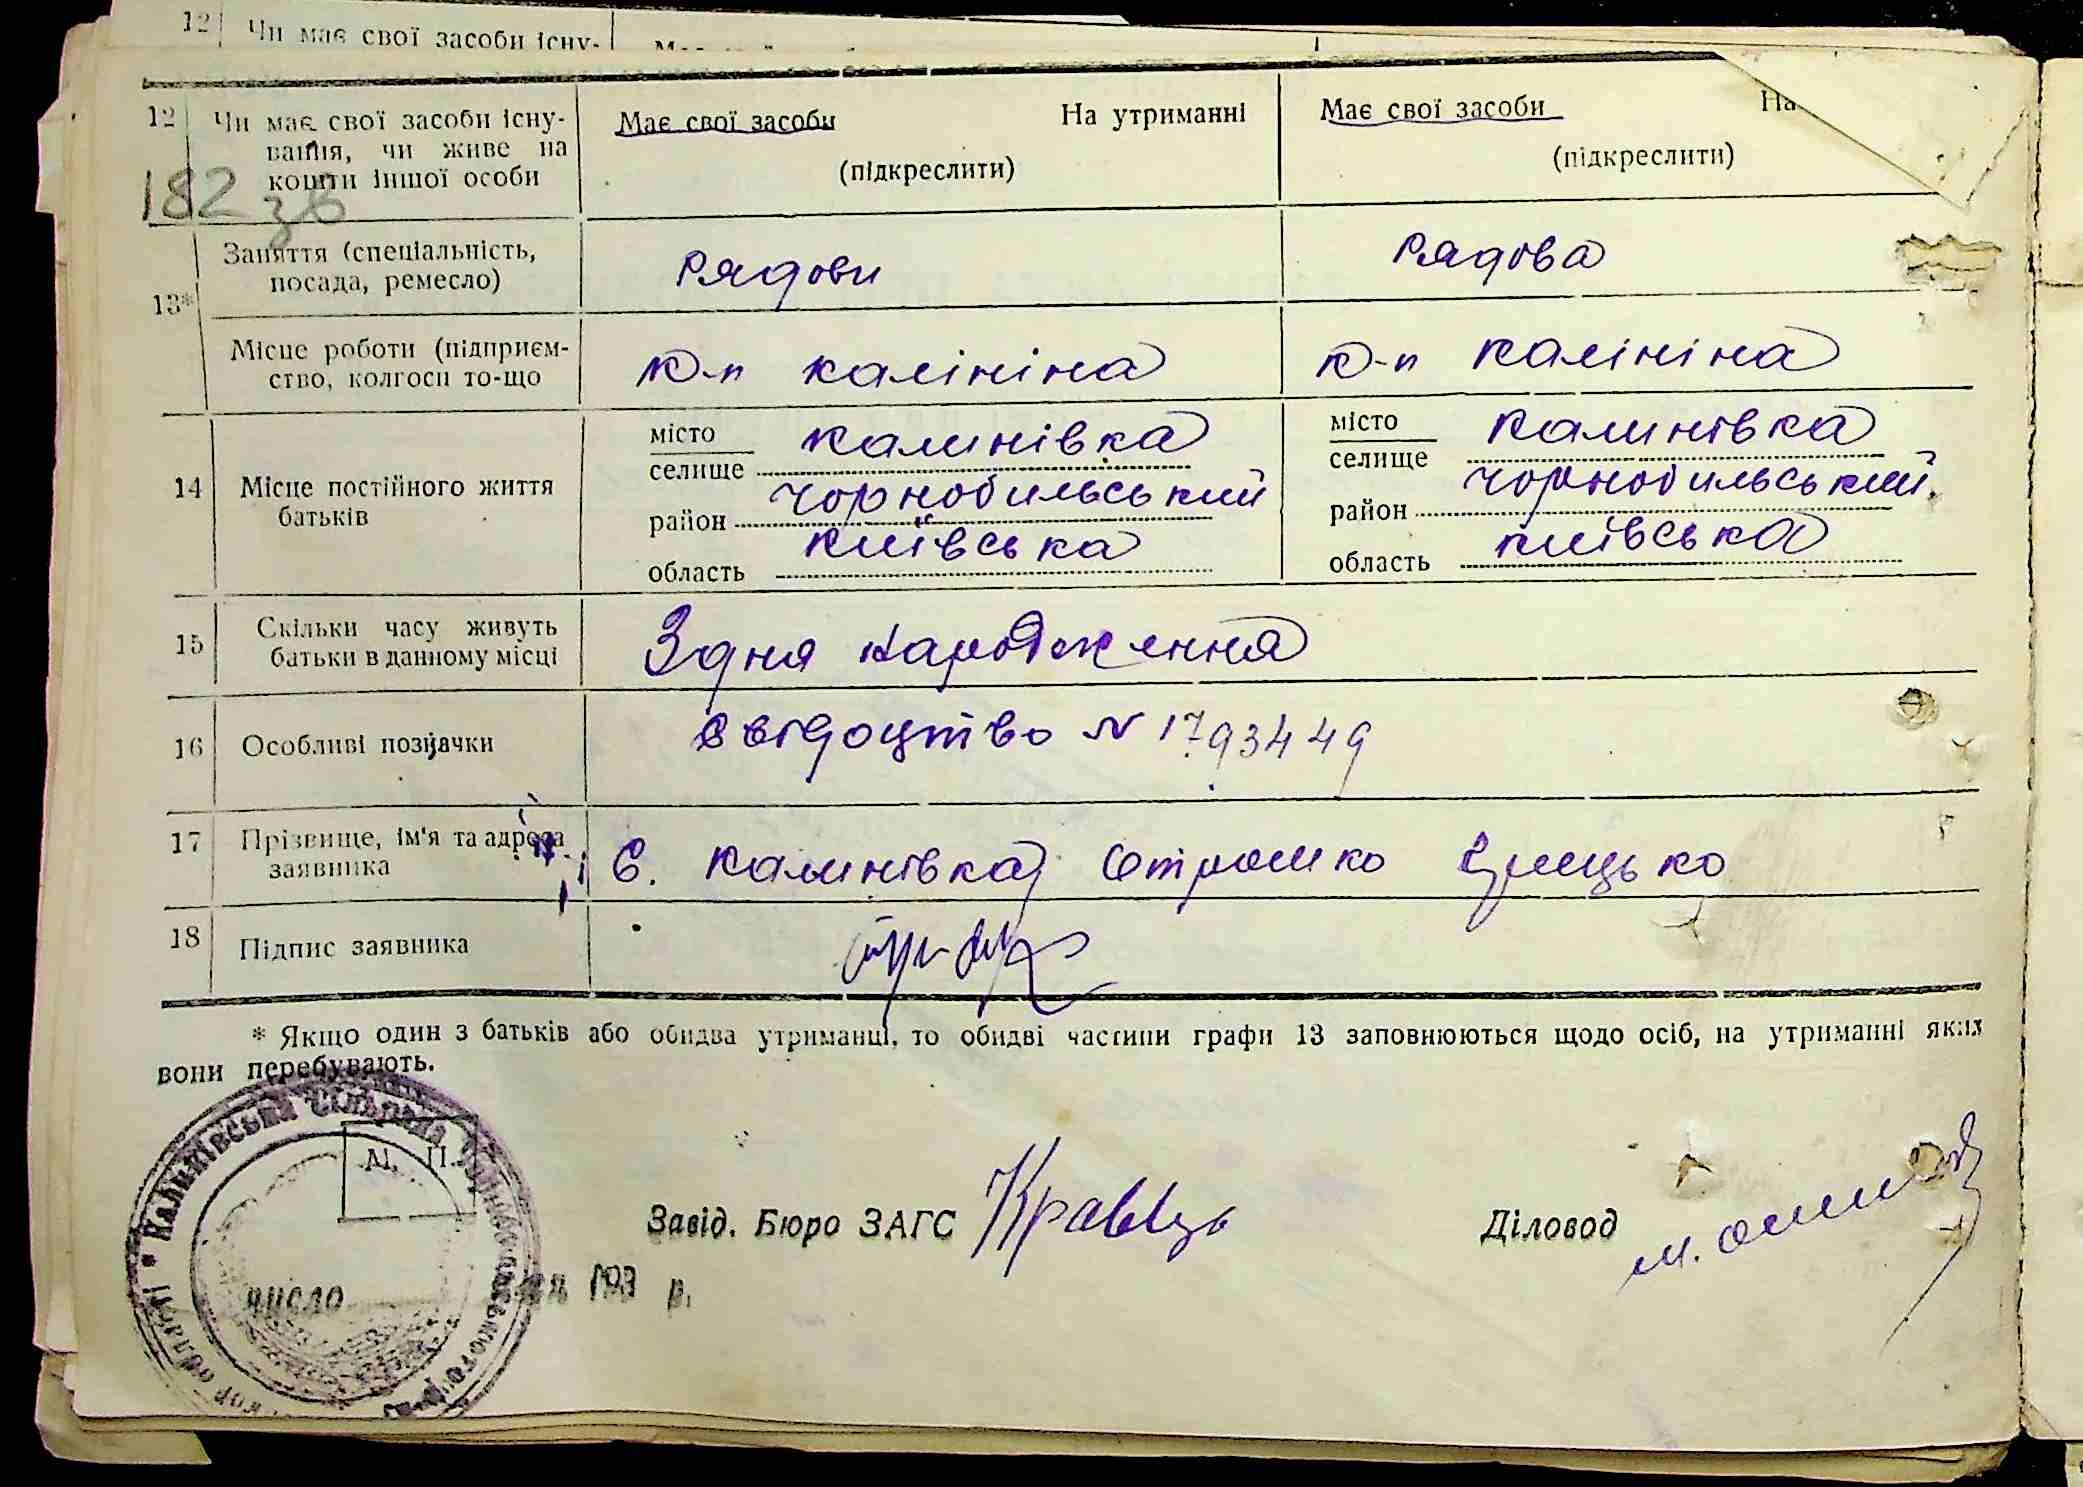 12 Чи має свої засоби існу-
12 Чи має свої засоби існу- Має свої засоби На утриманні Має свої засоби На
вання, чи живе на
кошти іншої особи (підкреслити) (підкреслити)
182 зв
13* Заняття (спеціальність, Рядови Рядова
посада, ремесло)
Місце роботи (підприєм- к-п калініна к-п калініна
ство, колгосп то-що
14 Місце постійного життя місто калинівка місто калинівка
батьків селище селище
район чорнобильський район чорнобильський
область київська область київська
15 Скільки часу живуть З дня народження
батьки в данному місці
16 Особливі позначки свідоцтво N 1793449
17 Прізвище, ім'я та адреса С. калинівка Отрошко Грицько
заявника
18 Підпис заявника
* Якщо один з батьків або обидва утриманці, то обидві частини графи 13 заповнюються щодо осіб, на утриманні яких
вони перебувають.
М. П.
Завід. Бюро ЗАГС Кравець Діловод
число 193 р.